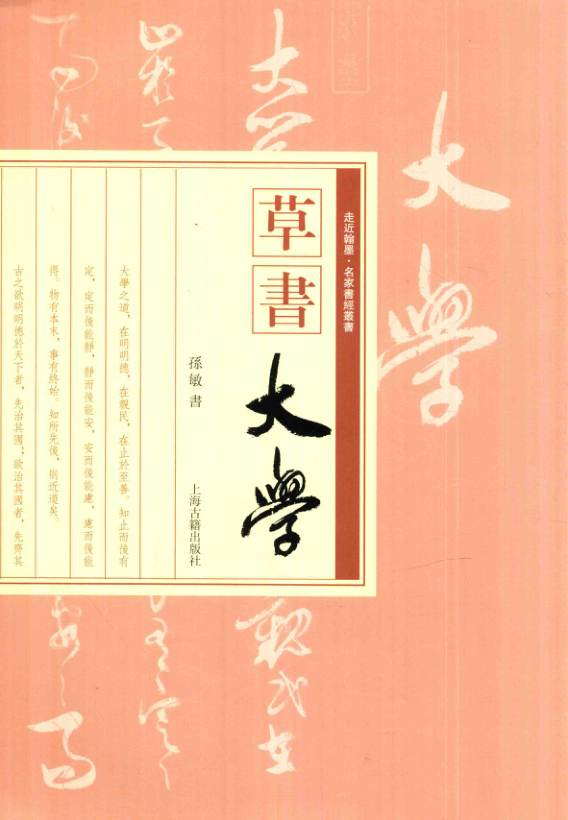 大學
走近翰墨·名家書經叢書
草書
大學
孫敏書
上海古籍出版社
大學之道，在明明德，在親民，在止於至善。知止而後有
定，定而後能靜，靜而後能安，安而後能慮，慮而後能
得。物有本末，事有終始。知所先後，則近道矣。
古之欲明明德於天下者，先治其國；欲治其國者，先齊其